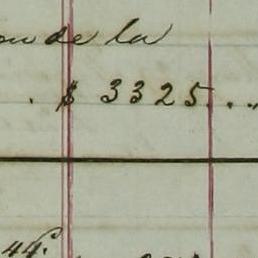 de la
. $ 3325...
44.